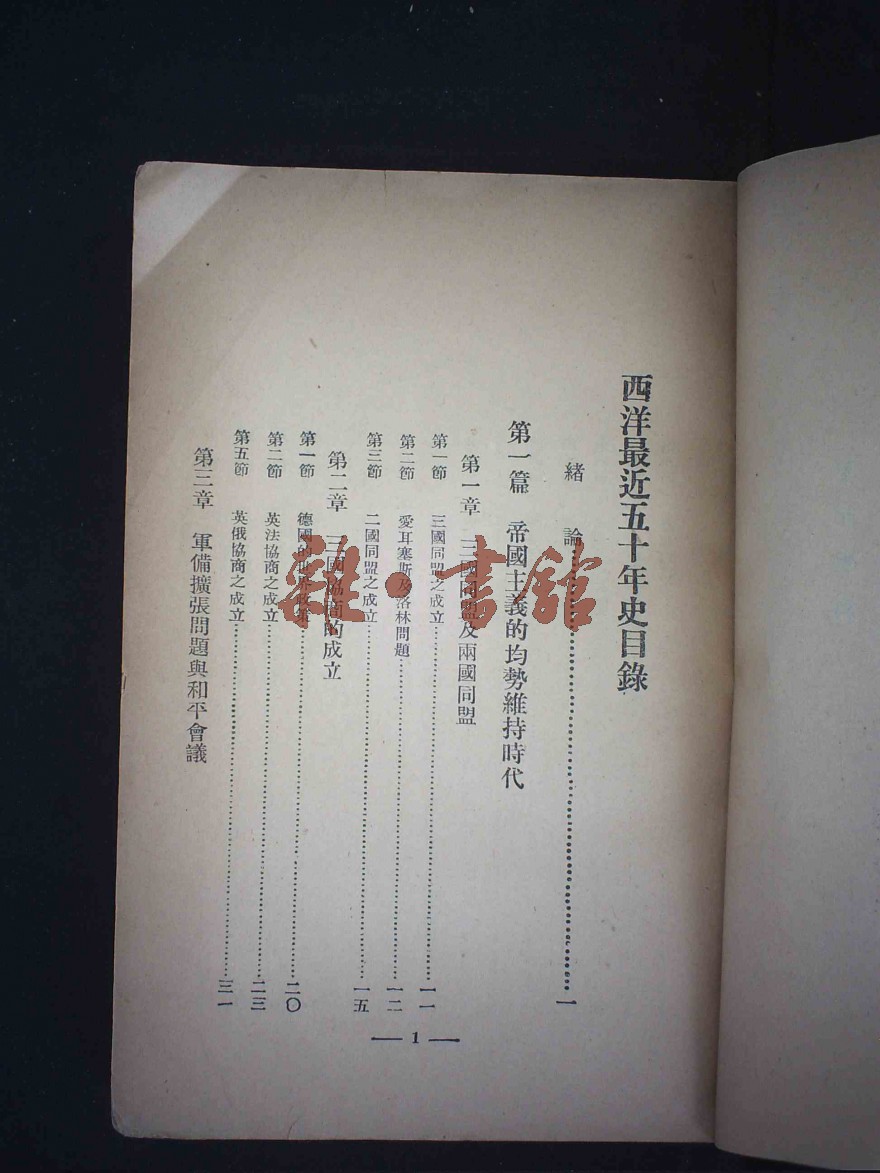 西洋最近五十年史目錄
緒論…………一
第一篇 帝國主義的均勢維持時代
第一章 三國同盟及兩國同盟
第一節 三國同盟之成立…………一一
第二節 愛耳塞斯及洛林問題…………一二
第三節 二國同盟之成立…………一五
第二章 三國協商的成立
第一節 德國的世界政策…………二〇
第二節 英法協商之成立…………二三
第五節 英俄協商之成立…………三一
第三章 軍備擴張問題與和平會議
— 1 —
雜·書館